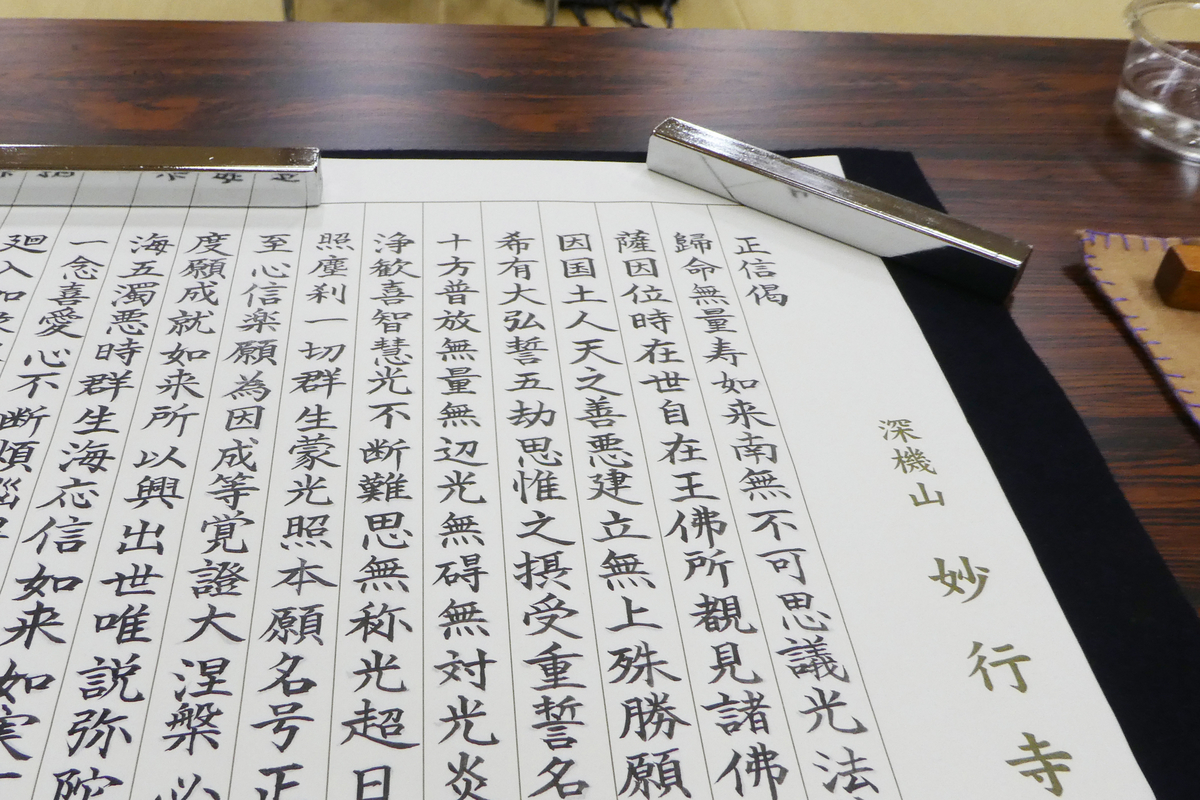 深機山 妙行寺
正信偈
歸命無量寿如来南無不可思議光法
薩因位時在世自在王佛所覩見諸佛
因国土人天之善悪建立無上殊勝願
希有大弘誓五劫思惟之摂受重誓名
十方普放無量無辺光無碍無対光炎
浄歓喜智慧光不断難思無称光超日
照塵刹一切群生蒙光照本願名号正
至心信楽願為因成等覚證大涅槃必
度願成就如来所以興出世唯説弥陀
海五濁悪時群生海応信如来如実
一念喜愛心不断煩悩
廻入如